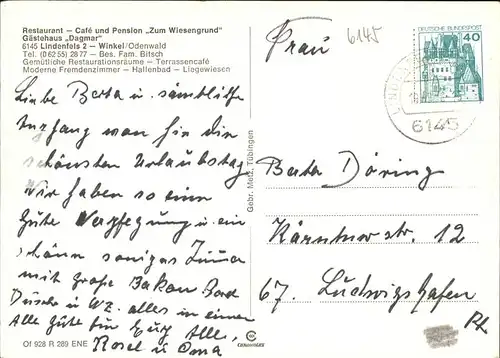 Restaurant – Café und Pension „Zum Wiesengrund"
Gästehaus „Dagmar"
6145 Lindenfels 2 – Winkel/Odenwald
Tel. (06255) 2877 – Bes. Fam. Bitsch
Gemütliche Restaurationsräume – Terrassencafé
Moderne Fremdenzimmer – Hallenbad – Liegewiesen
Liebe Berta u. sämtliche
Anhang von hir die
schönsten Urlaubstag
Wir haben so eine
Gute Verpflegung u. ein
schönn soniges Zimmer
mit große Balkon Bad
Dusche u WZ. alles in einen
Alle Gute für Eurg Alle,
Rosel u Oma
Of 928 R 289 ENE
CEKADECOLOR
Gebr. Metz, Tübingen
6145
Frau
DEUTSCHE BUNDESPOST
40
6145
Berta Döring
Kärntner str. 12
67. Ludwigshafen
Rh